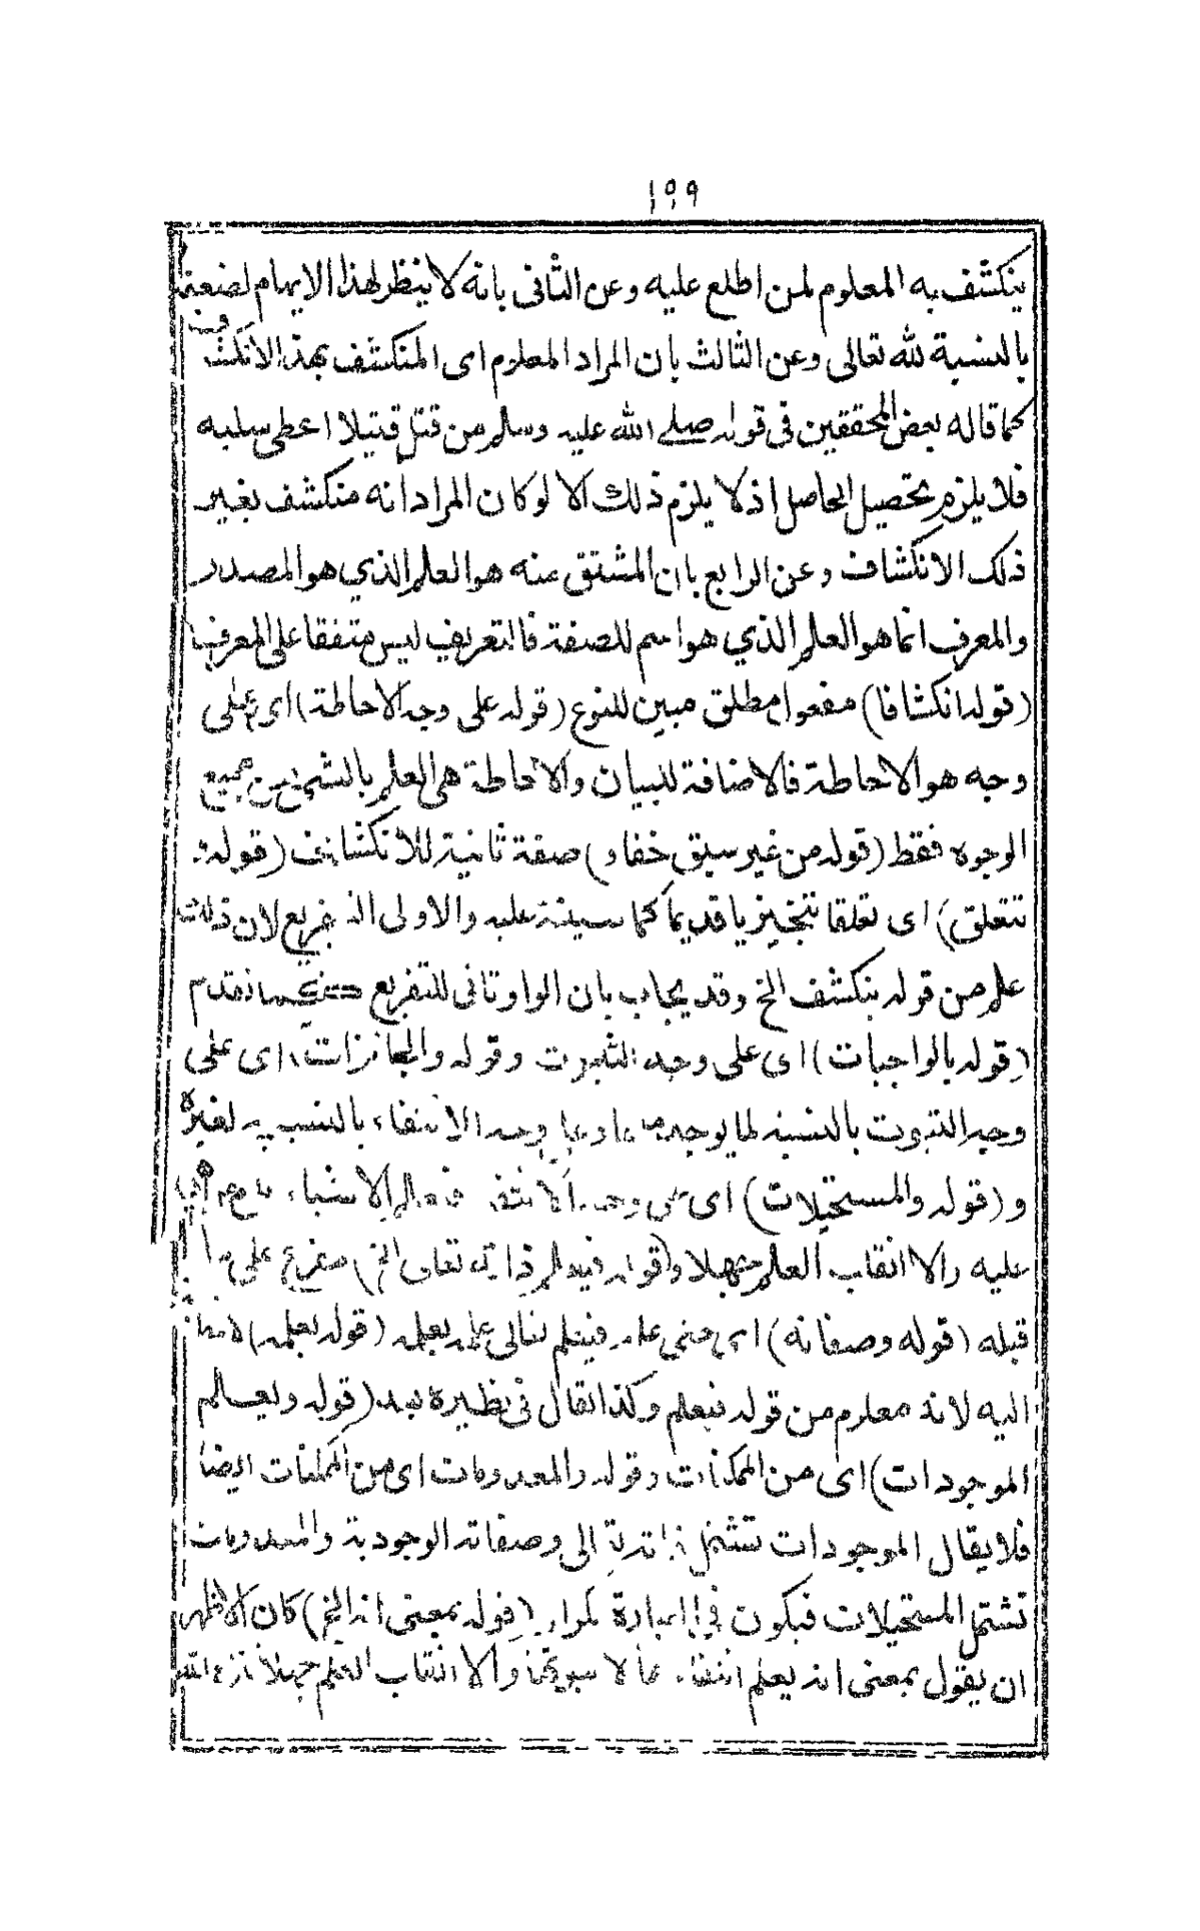 ١٥٩
ينكشف به المعلوم لمن اطلع عليه وعن الثانى بانه لا ينظر لهذا الايهام لضعفه
بالنسبة لله تعالى وعن الثالث بان المراد المعلوم اى المنكشف بهذا الانكشاف
كما قاله بعض المحققين فى قوله صلى الله عليه وسلم من قتل قتيلا اعطى سلبه
فلا يلزم تحصيل الحاصل اذ لا يلزم ذلك الا لو كان المراد انه منكشف بغير
ذلك الانكشاف وعن الرابع بان المشتق منه هو العلم الذي هو المصدر
والمعرف انما هو العلم الذي هو اسم للصفة فالتعريف ليس متفقا على المعرف
(قوله انكشافا) مفعول مطلق مبين للنوع (قوله على وجه الاحاطة) اى على
وجه هو الاحاطة فالاضافة للبيان والاحاطة هى العلم بالشئ من جميع
الوجوه فقط (قوله من غير سبق خفاء) صفة ثانية للانكشاف (قوله
تتعلق) اى تعلقا تنجيزيا قديما كما سينبه عليه والاولى التفريع لان ذلك
علم من قوله ينكشف الخ وقد يجاب بان الواو تاتى للتفريع تقدم
(قوله بالواجبات) اى على وجه الثبوت وقوله والجائزات اى على
وجه الثبوت بالنسبة لما يوجد منها وعلى وجه الانتفاء بالنسبة لغيره
و(قوله والمستحيلات) اى على وجه الانتفاء فيعلم الاشياء
عليه والا انقلب العلم جهلا و(قوله فيعلم ذاته تعالى الخ) مفرع على ما
قبله (قوله وصفاته) اى حتى علمه فيعلم تعالى علمه بعلمه (قوله بعلمه)
اليه لانه معلوم من قوله فيعلم وكذا يقال فى نظيره بعد (قوله ويعلم
الموجودات) اى من الممكنات وقوله والمعدومات اى من الممكنات ايضا
فلا يقال الموجودات تشتمل ذاته تعالى وصفاته الوجودية والمعدومات
تشتمل المستحيلات فيكون فى العبارة تكرار (قوله بمعنى انه الخ) كان الاظهر
ان يقول بمعنى انه يعلم انتفاء والا انقلب العلم جهلا